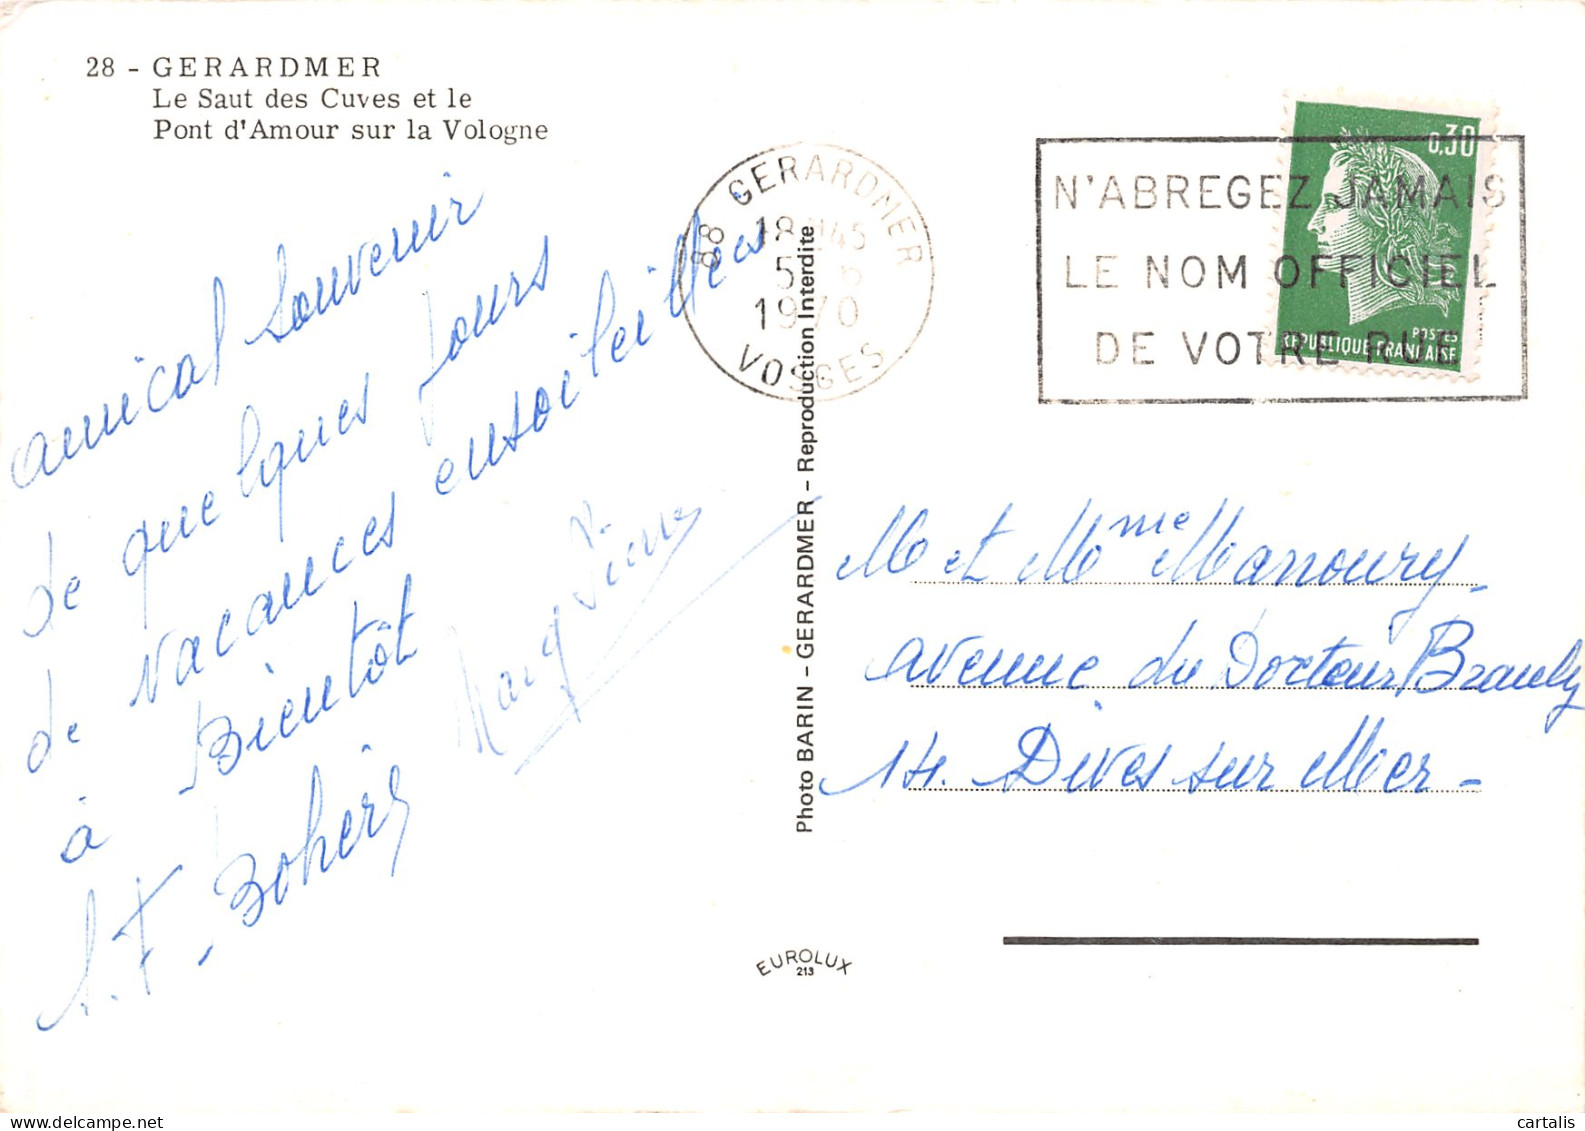 28 - GERARDMER
Le Saut des Cuves et le
Pont d'Amour sur la Vologne
88 GERARDMER
18 H45
5 - 6
1970
VOSGES
N'ABREGEZ JAMAIS
LE NOM OFFICIEL
DE VOTRE RUE
0,30
POSTES
REPUBLIQUE FRANCAISE
amical souvenir
de quelques jours
de vacances ensoleillées
à Bientôt
Photo BARIN - GERARDMER - Reproduction Interdite
M et Mme Manoury -
avenue du Docteur
14. Dives sur Mer -
EUROLUX
213
cartalis
www.delcampe.net